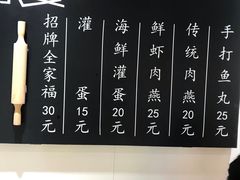 手打鱼丸25元
传统肉燕20元
鲜虾肉燕25元
海鲜灌蛋20元
灌蛋15元
招牌全家福30元